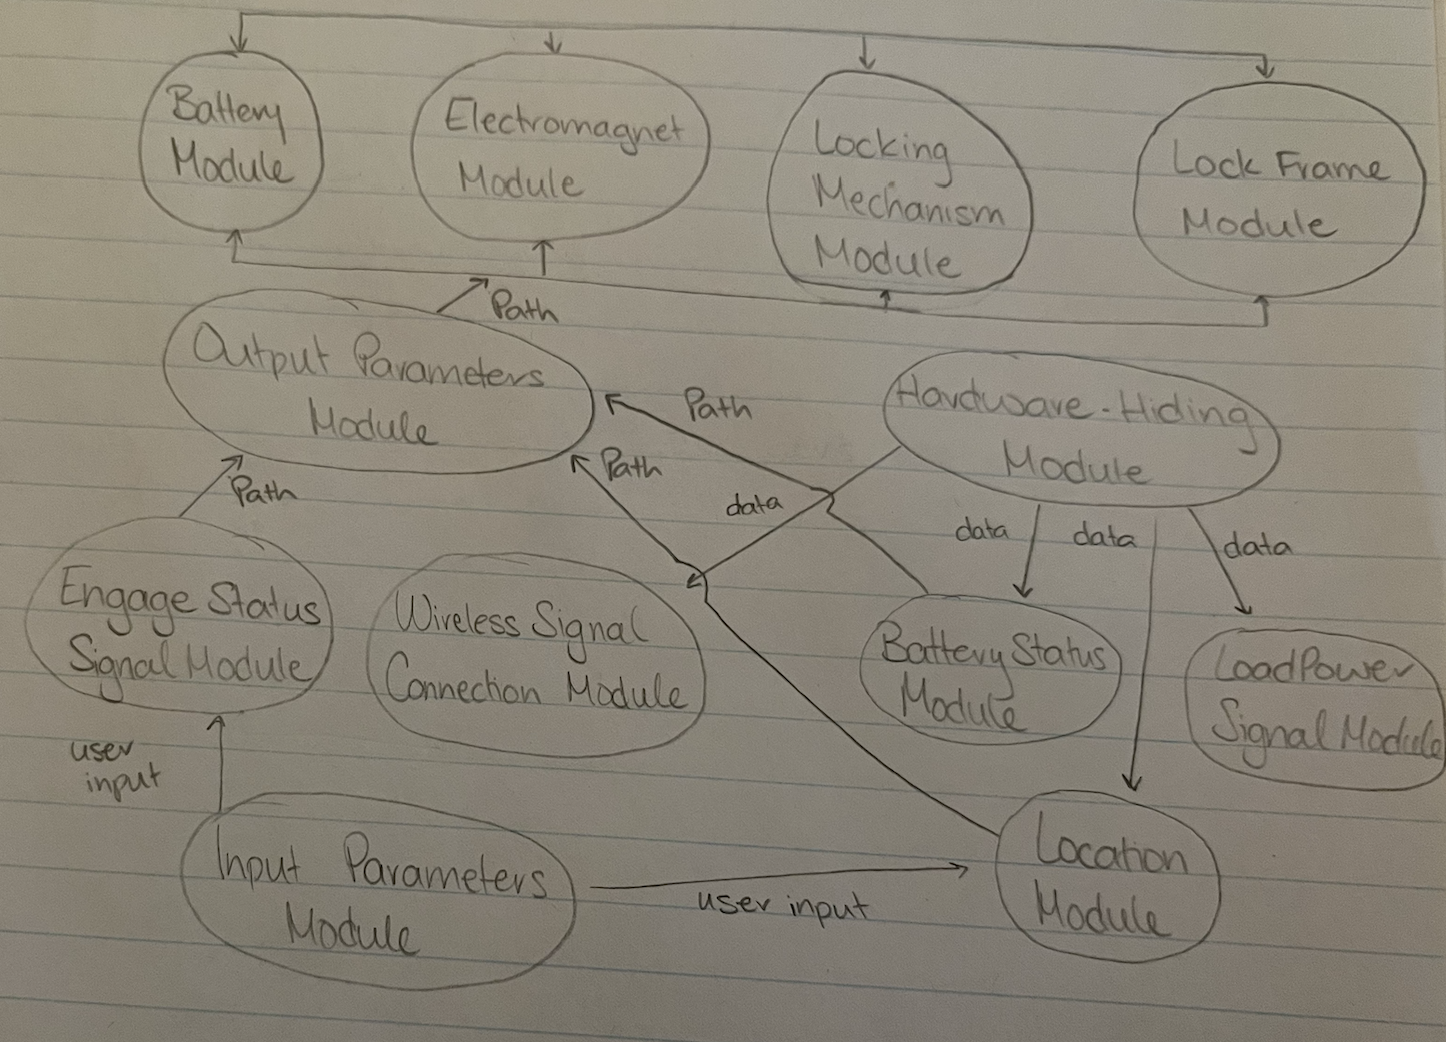 Battery
Module
Electromagnet
Module
Locking
Mechanism
Module
Lock Frame
Module
Path
Output Parameters
Module
Hardware-Hiding
Module
Path
Path
Path
data
data
data
data
Engage Status
Signal Module
Wireless Signal
Connection Module
Battery Status
Module
Load Power
Signal Module
user
input
Input Parameters
Module
user input
Location
Module